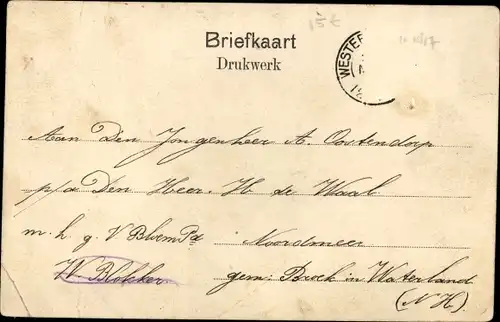 15 €
Briefkaart
Drukwerk
WESTER
Aan Den Jongenheer A. Oostendorp
p/a Den Heer. H de Waal
m. h. g. V Bloem Pz Noordmeer
W Blokker gem: Broek in Waterland
(N H.)